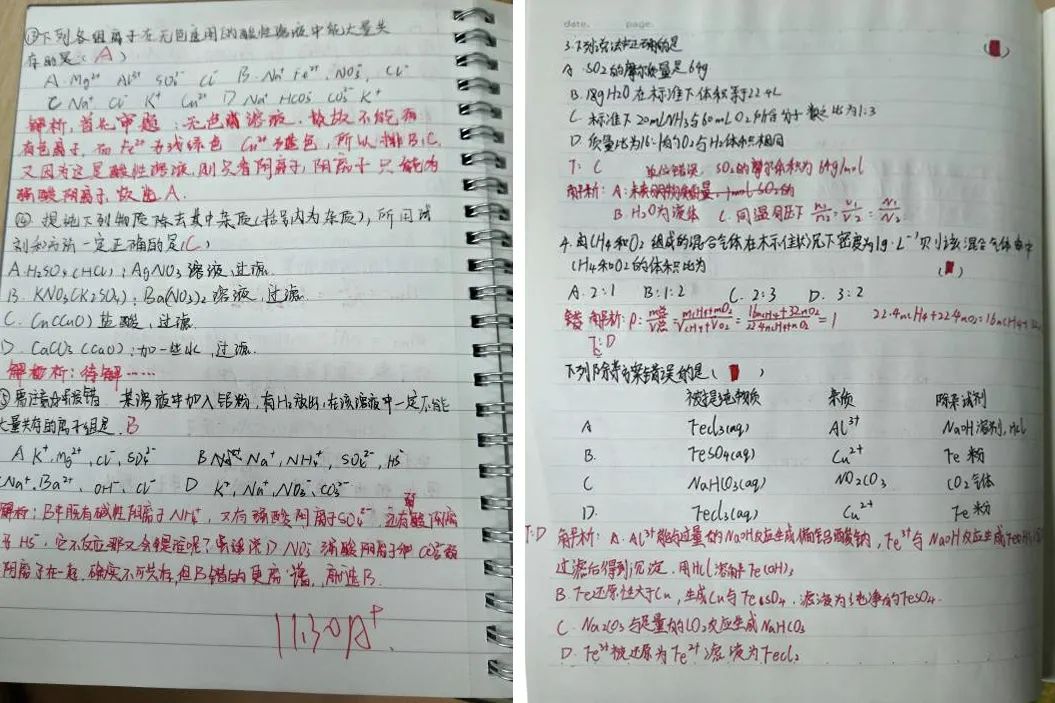 ③下列各组离子在无色透明的酸性溶液中能大量共
存的是( A )
A.Mg²⁺ Al³⁺ SO₄²⁻ Cl⁻ B.Na⁺ Fe²⁺ NO₃⁻, Cl⁻
C Na⁺ Cl⁻ K⁺ Cu²⁺ D Na⁺ HCO₃⁻ CO₃²⁻ K⁺
解析,首先审题:无色 溶液. 故 不能有
有色离子,而Fe²⁺为浅绿色 Cu²⁺为蓝色,所以排B,C,
又因为这是酸性溶液,则只有阴离子,阴离子只能为
强酸阴离子,故选A.
④ 提纯下列物质除去其中杂质(括号内为杂质),所用试
剂和方法一定正确的是(C)
A.H₂SO₄(HCl):AgNO₃溶液,过滤.
B.KNO₃(K₂SO₄):Ba(NO₃)₂溶液,过滤
C.Cu(CuO) 盐酸,过滤.
D.CaCO₃(CaO):加一些水,过滤.
解析:待解……
⑤ 某溶液中加入铝粉,有H₂放出,在该溶液中一定不能
大量共存的离子组是. B
A K⁺,Mg²⁺,Cl⁻,SO₄²⁻ B Na⁺,NH₄⁺,SO₄²⁻,HS⁻
Na⁺,Ba²⁺,OH⁻,Cl⁻ D K⁺,Na⁺,NO₃⁻,CO₃²⁻
解析:B中既有碱性阳离子NH₄⁺,又有强酸阴离子SO₄²⁻还有弱酸阴离
子HS⁻,它不反应那又会是谁呢? D NO₃⁻强酸阴离子和CO₃²⁻弱酸
阴离子在一起,确实不可共存,但B错的更离谱,所选B.
11.30 A⁺
date. page.
3.下列说法中正确的是
A.SO₂的摩尔质量是64g
B.18gH₂O在标准下体积等于22.4L
C.标准下20mLNH₃与60mLO₂所含分子数之比为1:3
D.质量比为16:1的O₂与H₂体积相同
T: C 单位错误, SO₂的摩尔体积为64g/mol
解析:A:
B.H₂O为液体 C.同温同压下 n₁/n₂=V₁/V₂=N₁/N₂
4.由CH₄和O₂组成的混合气体在标准状况下密度为1g·L⁻¹则该混合气体中
CH₄和O₂的体积比为
A.2:1 B:1:2 C.2:3 D.3:2
错 解析:
T:D
下列除杂方案错误的是( )
被提纯物质 杂质 除杂试剂
A FeCl₃(aq) Al³⁺ NaOH溶剂,HCl
B. FeSO₄(aq) Cu²⁺ Fe粉
C NaHCO₃(aq) Na₂CO₃ CO₂气体
D. FeCl₃(aq) Cu²⁺ Fe粉
T:D 解析:A.Al³⁺能与过量的NaOH反应生成偏铝酸钠,Fe³⁺与NaOH反应生成
过滤后得到沉淀.用HCl溶解Fe(OH)₃
B.Fe还原性大于Cu,生成Cu与FeSO₄.滤液为纯净的FeSO₄.
C.Na₂CO₃与足量的CO₂反应生成NaHCO₃
D.Fe³⁺被还原为Fe²⁺滤液为FeCl₂